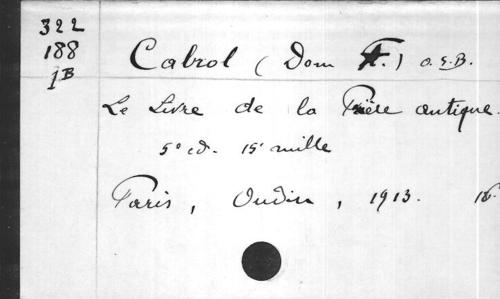 322
188
1B
Cabrol (Dom F.) O.S.B.
Le Livre de la Prière antique.
5° éd. 15e mille
Paris, Oudin, 1913. 16.